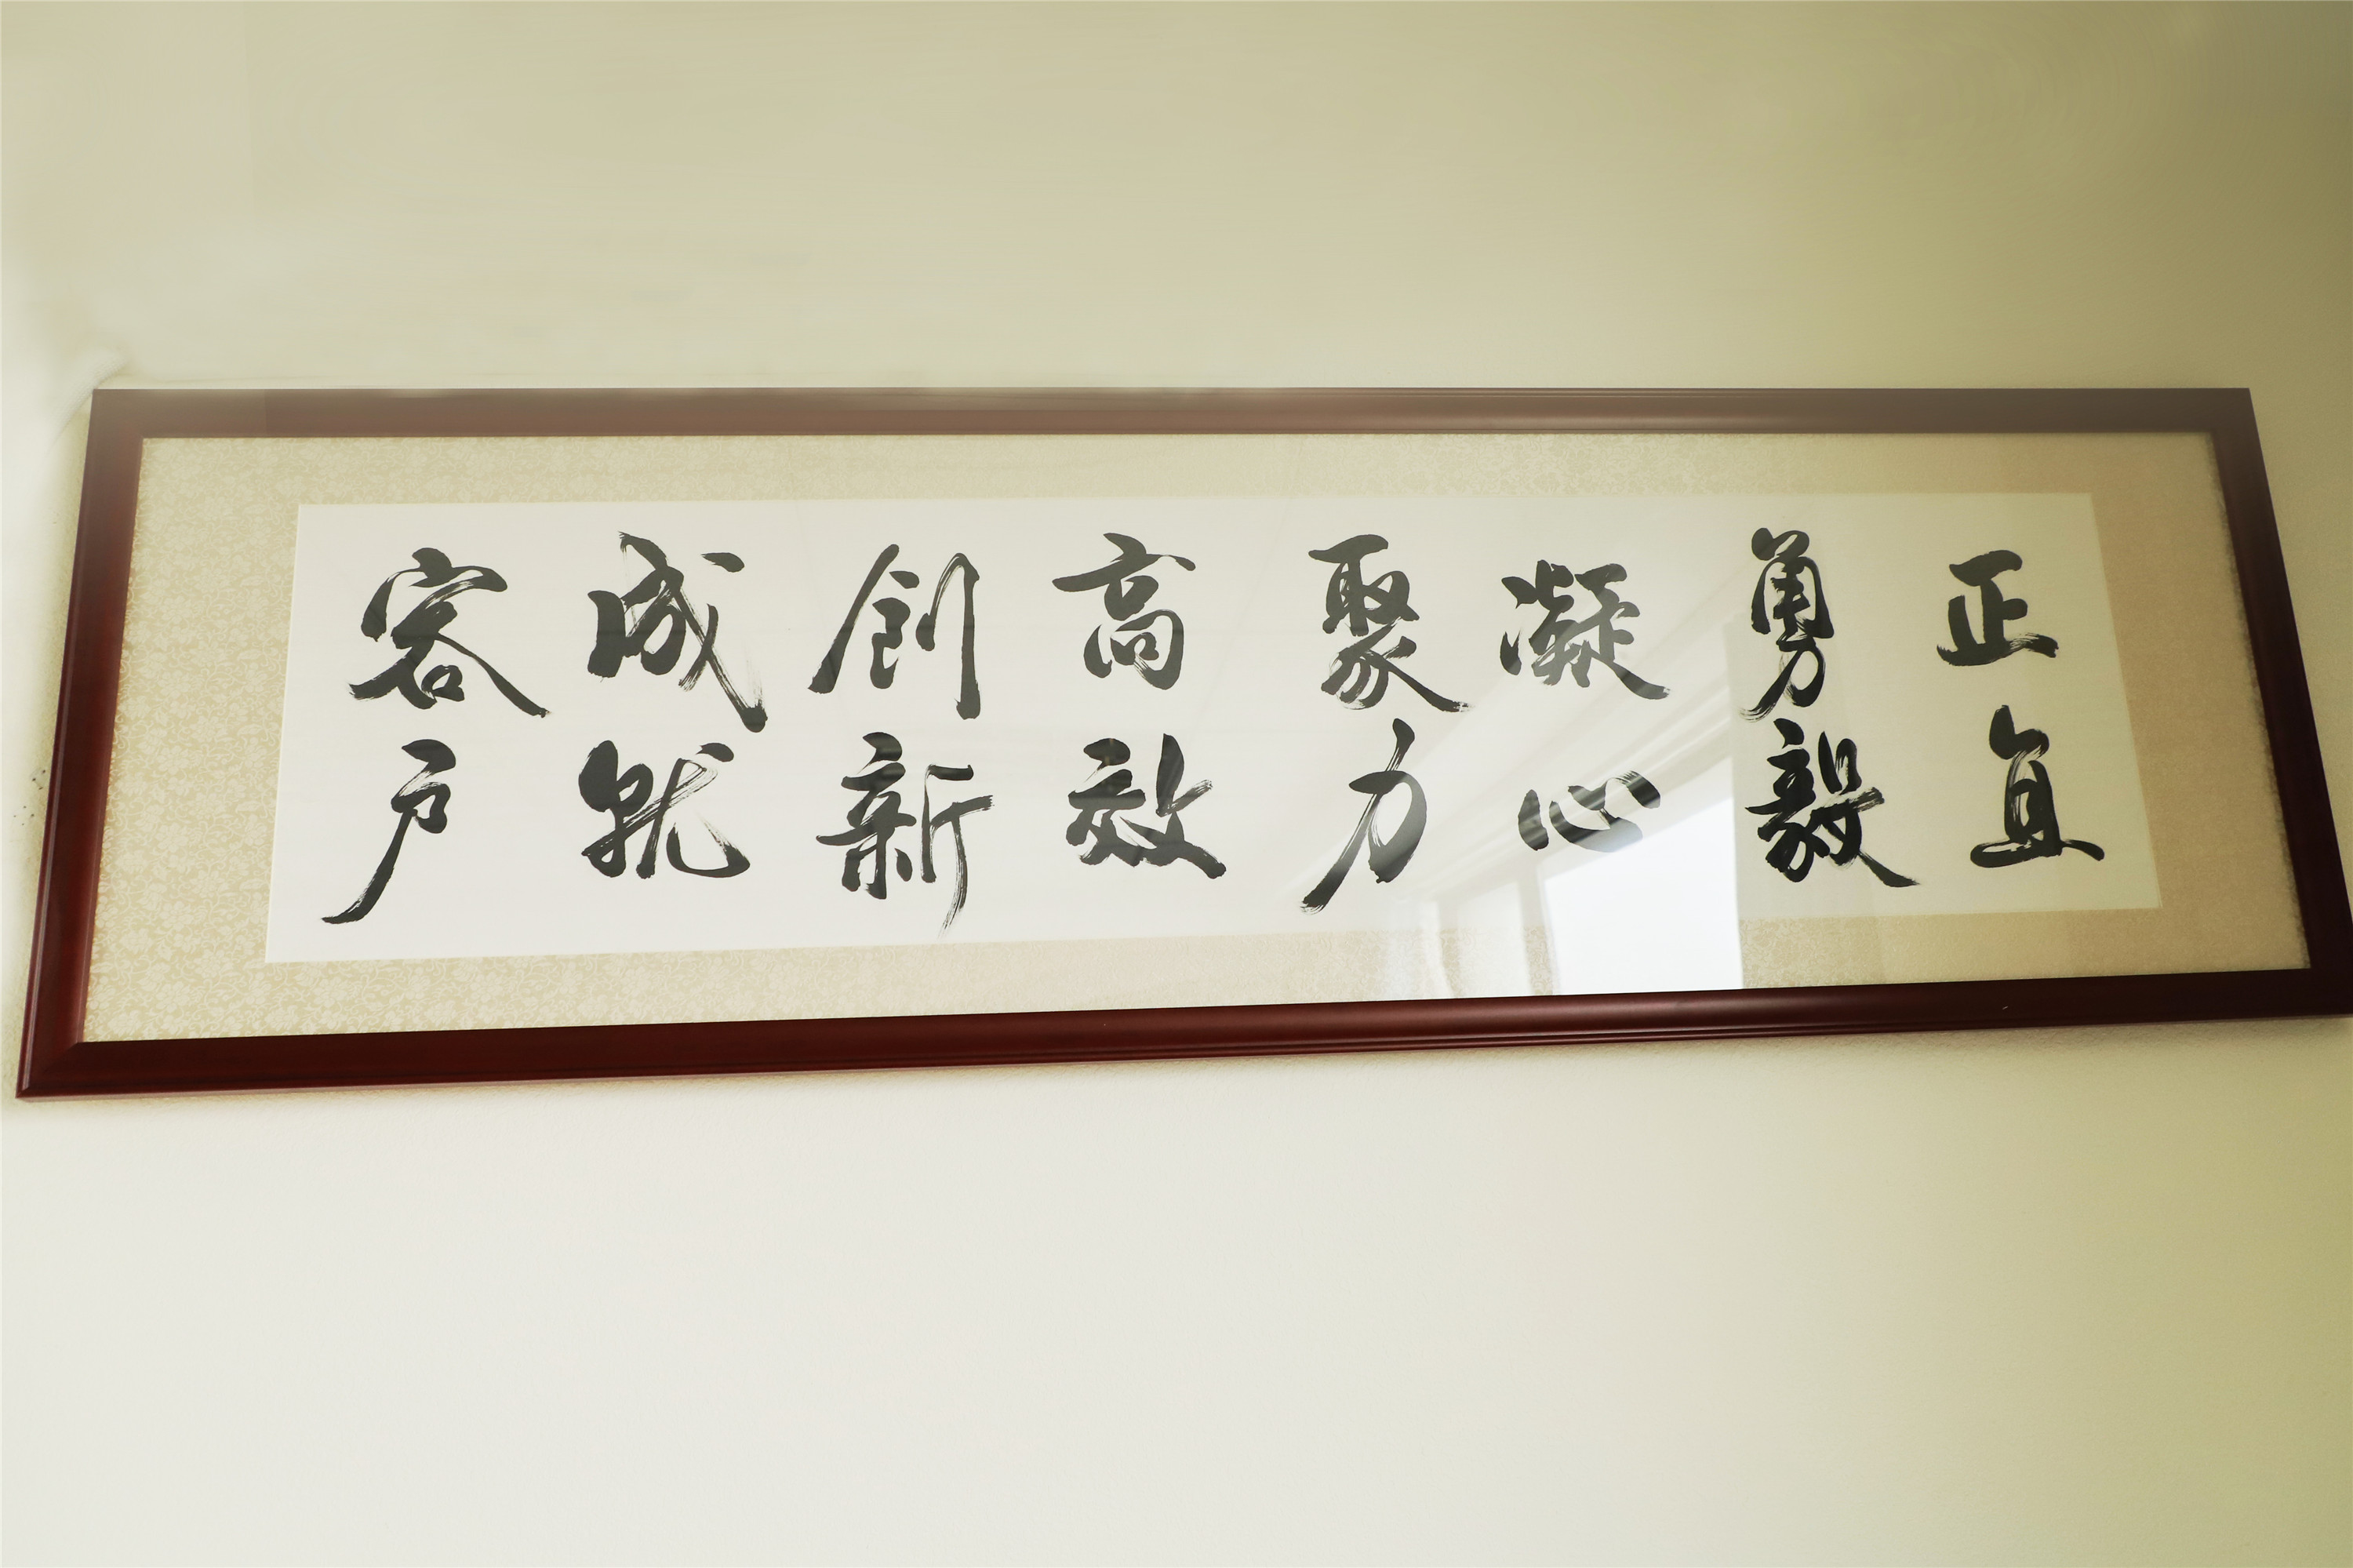 正直
勇毅
凝心
聚力
高效
創新
成就
客户